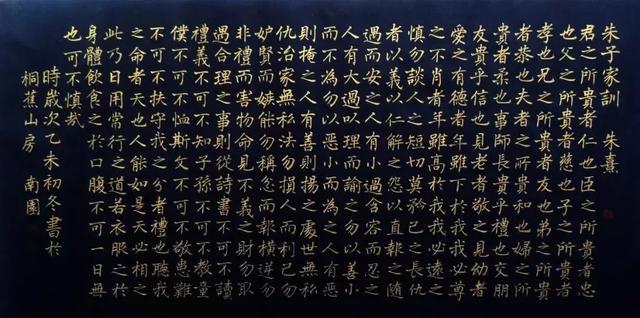 朱子家訓 朱熹
君之所貴者仁也臣之所貴者忠
也父之所貴者慈也子之所貴者
孝也兄之所貴者友也弟之所貴
者恭也夫之所貴者和也婦之所
貴者柔也事師長貴乎禮也交朋
友貴乎信也見老者敬之見幼者
愛之有德者年雖下於我我必尊
之不肖者年雖高於我我必遠之
慎勿談人之短切莫矜己之長仇
者以義以仁解之怨以直報之隨
遇而安之人有小過含容而忍之
人有大過以理而諭之勿以善小
而不為勿以惡小而為之人有惡
則掩之人有善則揚之處世無私
仇治家無私法勿損人而利己勿
妒賢而嫉能勿稱忿而報橫逆勿
非禮而害物命見不義之財勿取
遇合理之事則從詩書不可不讀
禮義不可不知子孫不可不教童
僕不可不恤斯文不可不敬患難
不可不扶守我之分者禮也聽我
之命者天也人能如是天必相之
此乃日用常行之道若衣服之於
身體飲食之於口腹不可一日無
也可不慎哉
時歲次乙未初冬書於
桐蕉山房 南園